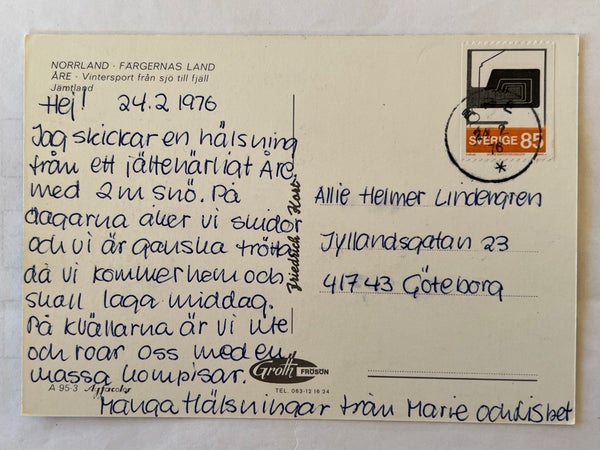 NORRLAND · FÄRGERNAS LAND
ÅRE · Vintersport från sjö till fjäll
Jämtland
Hej! 24.2 1976
Jag skickar en hälsning
från ett jättehärligt Åre
med 2m snö. På
dagarna åker vi skidor
och vi är ganska trötta
då vi kommer hem och
skall laga middag.
På kvällarna är vi ute
och roar oss med en
massa kompisar.
Många Hälsningar från Marie och Lisbet
A 95-3 Agfacolor
Friedrichs Kort
Groth FRÖSÖN
TEL. 063-12 16 24
SVERIGE 85
24 2
76
Allie Helmer Lindengren
Jyllandsgatan 23
41743 Göteborg